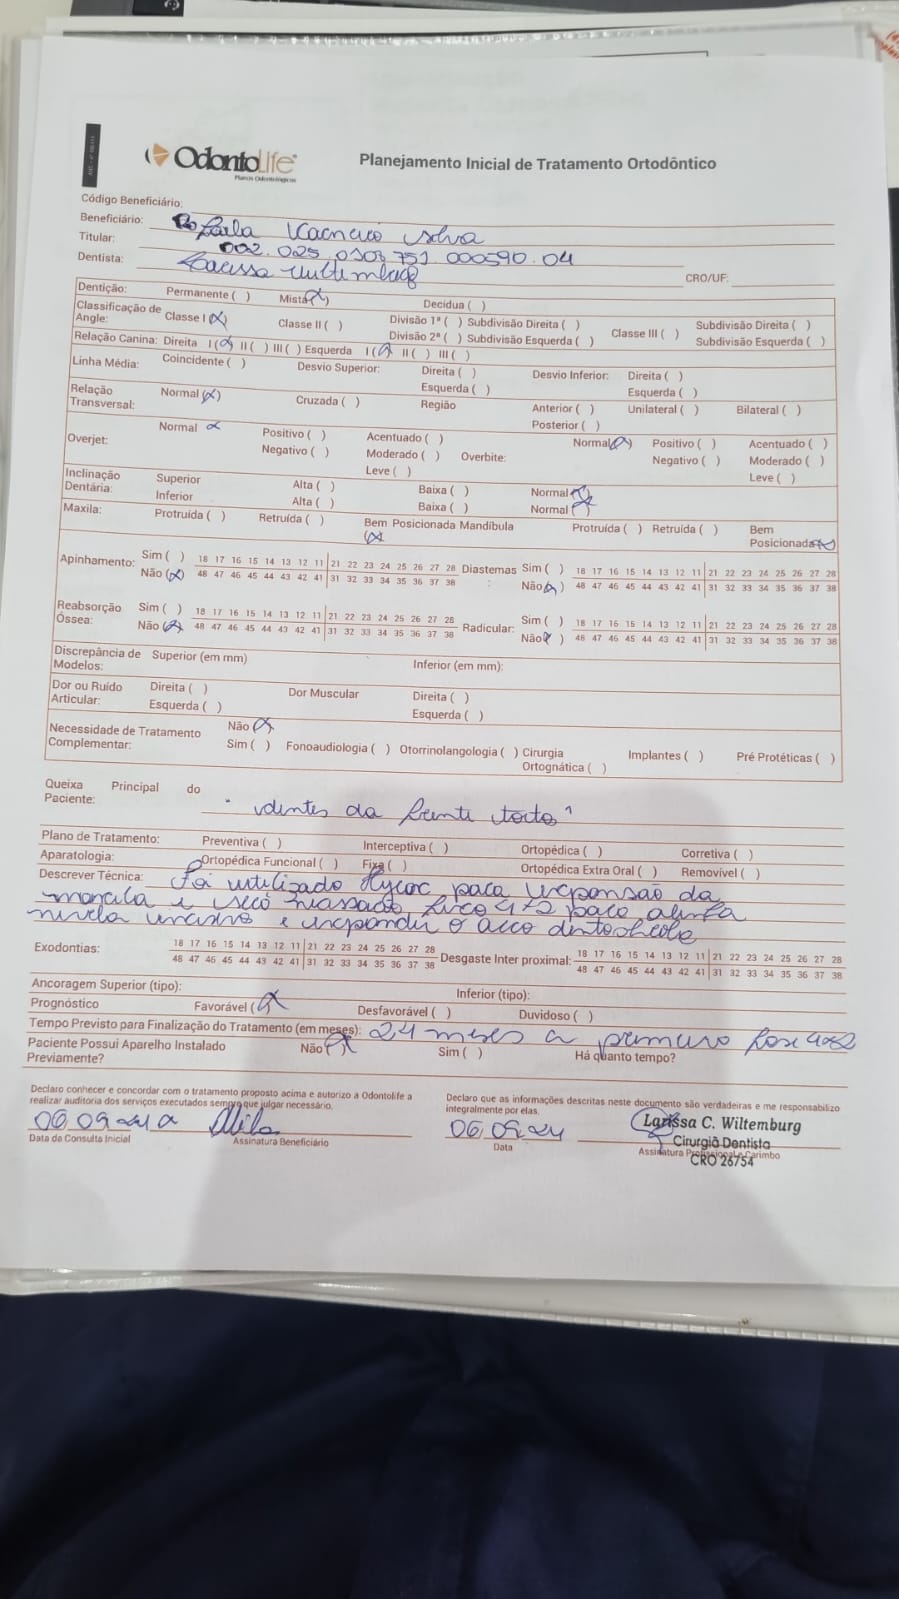 OdontoLife
Planos Odontológicos
Planejamento Inicial de Tratamento Ortodôntico
Código Beneficiário:
Beneficiário: Silva
Titular: 002.025.0303 751.000590.04
Dentista: CRO/UF:
Dentição: Permanente ( ) Mista (x) Decídua ( )
Classificação de Angle: Classe I (x) Classe II ( ) Divisão 1ª ( ) Subdivisão Direita ( ) Classe III ( ) Subdivisão Direita ( )
Divisão 2ª ( ) Subdivisão Esquerda ( ) Subdivisão Esquerda ( )
Relação Canina: Direita I (x) II ( ) III ( ) Esquerda I (x) II ( ) III ( )
Linha Média: Coincidente ( ) Desvio Superior: Direita ( ) Desvio Inferior: Direita ( )
Esquerda ( ) Esquerda ( )
Relação Transversal: Normal (x) Cruzada ( ) Região Anterior ( ) Unilateral ( ) Bilateral ( )
Posterior ( )
Overjet: Normal x Positivo ( ) Acentuado ( ) Overbite: Normal (x) Positivo ( ) Acentuado ( )
Negativo ( ) Moderado ( ) Negativo ( ) Moderado ( )
Leve ( ) Leve ( )
Inclinação Dentária: Superior Alta ( ) Baixa ( ) Normal (x)
Inferior Alta ( ) Baixa ( ) Normal (x)
Maxila: Protruída ( ) Retruída ( ) Bem Posicionada (x) Mandíbula Protruída ( ) Retruída ( ) Bem Posicionada (x)
Apinhamento: Sim ( ) 18 17 16 15 14 13 12 11 21 22 23 24 25 26 27 28 Diastemas Sim ( ) 18 17 16 15 14 13 12 11 21 22 23 24 25 26 27 28
Não (x) 48 47 46 45 44 43 42 41 31 32 33 34 35 36 37 38 Não (x) 48 47 46 45 44 43 42 41 31 32 33 34 35 36 37 38
Reabsorção Óssea: Sim ( ) 18 17 16 15 14 13 12 11 21 22 23 24 25 26 27 28 Radicular: Sim ( ) 18 17 16 15 14 13 12 11 21 22 23 24 25 26 27 28
Não (x) 48 47 46 45 44 43 42 41 31 32 33 34 35 36 37 38 Não (x) 48 47 46 45 44 43 42 41 31 32 33 34 35 36 37 38
Discrepância de Modelos: Superior (em mm) Inferior (em mm):
Dor ou Ruído Articular: Direita ( ) Dor Muscular Direita ( )
Esquerda ( ) Esquerda ( )
Necessidade de Tratamento Complementar: Não (x)
Sim ( ) Fonoaudiologia ( ) Otorrinolangologia ( ) Cirurgia Ortognática ( ) Implantes ( ) Pré Protéticas ( )
Queixa Principal do Paciente: "dentes da frente torto"
Plano de Tratamento: Preventiva ( ) Interceptiva ( ) Ortopédica ( ) Corretiva ( )
Aparatologia: Ortopédica Funcional ( ) Fixa ( ) Ortopédica Extra Oral ( ) Removível ( )
Descrever Técnica: Foi utilizado Hyrax para expansão da
maxila e será fixo 4x2 para alinha
nivela incisivo e expandir o arco
Exodontias: 18 17 16 15 14 13 12 11 21 22 23 24 25 26 27 28 Desgaste Inter proximal: 18 17 16 15 14 13 12 11 21 22 23 24 25 26 27 28
48 47 46 45 44 43 42 41 31 32 33 34 35 36 37 38 48 47 46 45 44 43 42 41 31 32 33 34 35 36 37 38
Ancoragem Superior (tipo): Inferior (tipo):
Prognóstico Favorável (x) Desfavorável ( ) Duvidoso ( )
Tempo Previsto para Finalização do Tratamento (em meses): 24 meses a primeira fase 4x2
Paciente Possui Aparelho Instalado Previamente? Não (x) Sim ( ) Há quanto tempo?
Declaro conhecer e concordar com o tratamento proposto acima e autorizo a Odontolife a
realizar auditoria dos serviços executados sempre que julgar necessário.
Declaro que as informações descritas neste documento são verdadeiras e me responsabilizo
integralmente por elas.
06 09 24 06.09.24 Larissa C. Wiltemburg
Cirurgiã Dentista
CRO 26754
Data da Consulta Inicial Assinatura Beneficiário Data Assinatura Profissional e Carimbo